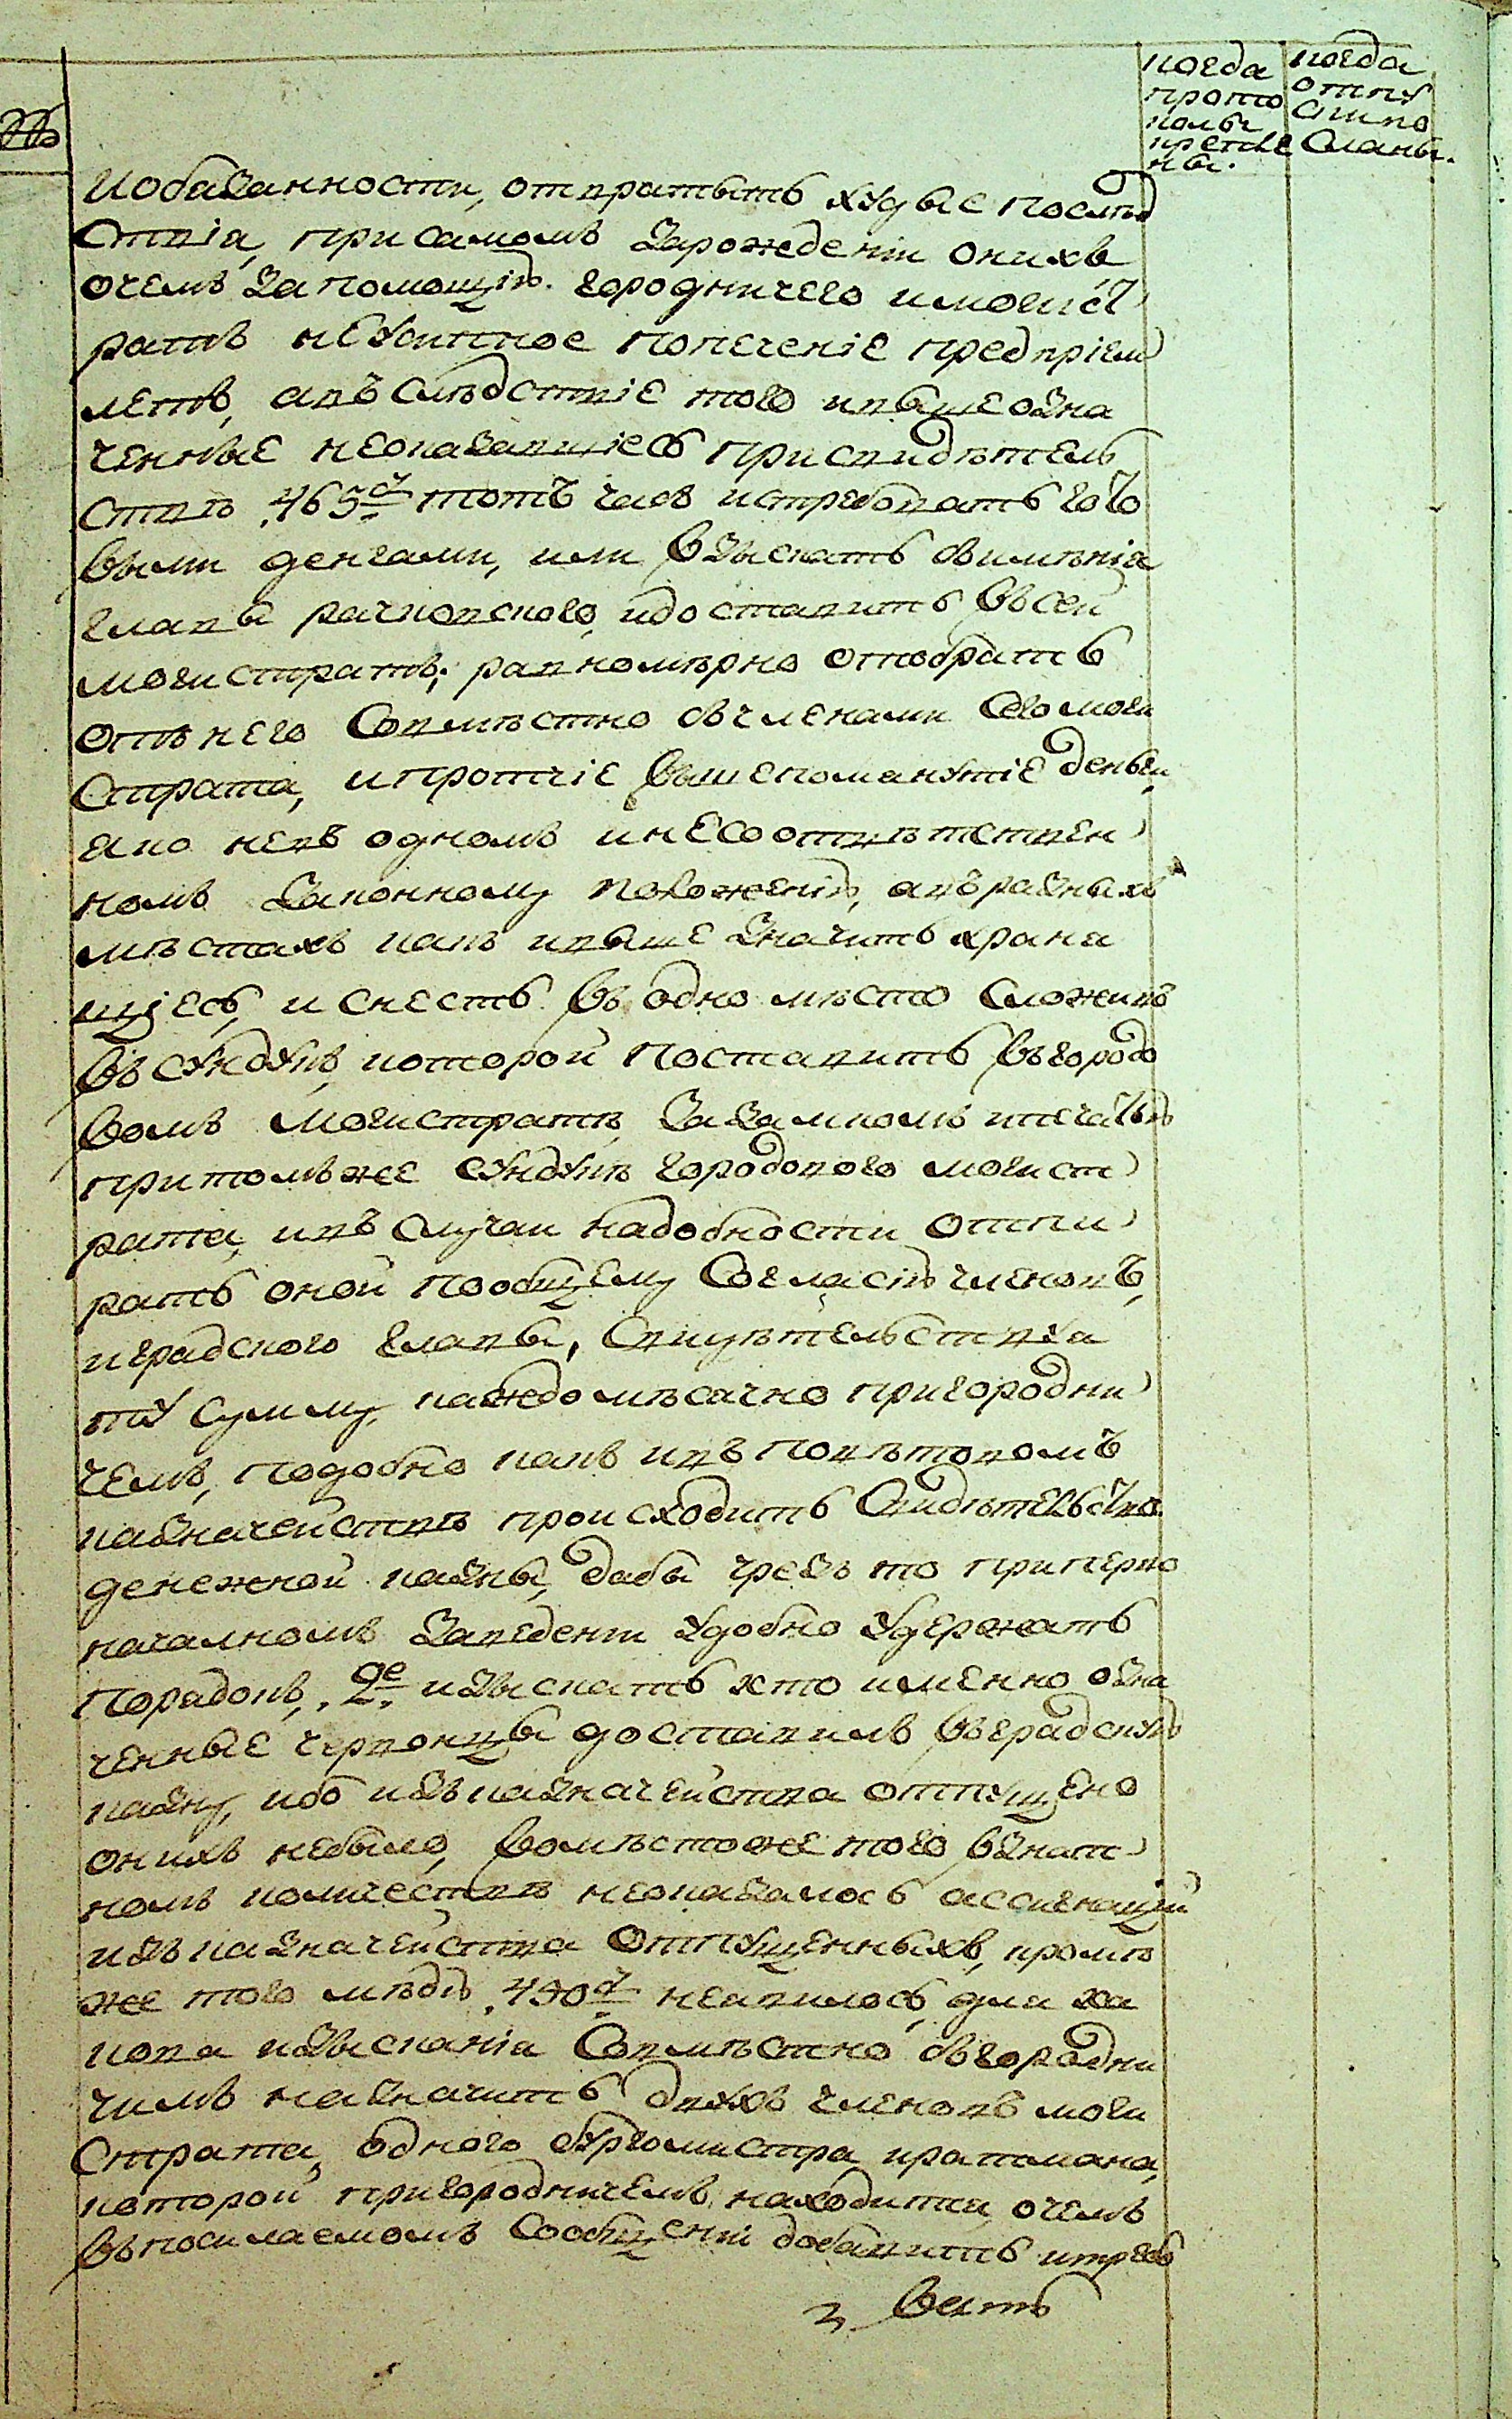 когда
прото
колы
крепле
ны.
когда
отпу
скипо
сланы.
иобязанности, отвратить худые послѣд
ствія, присамомъ зарожденіи онихъ
очемъ запомощію городничего имогист
ратъ неусипное попеченіе предпріем
летъ, авъ слѣдствіе того ивыше озна
ченные неоказавшіесь присвидѣтель
ствѣ 465 р тотъ часъ истребовать гото
выми денгами, или взыскать сымѣнія
главы рачковского, идоставить въсей
могистратъ; равномѣрно отобрать
отънего совмѣстно счленами сего моги
страта, ипротчіе вышепоманутіе деньги,
яко невъ одномъ инесоответствен
номъ законному положенію, авъразныхъ
мѣстахъ какъ ивыше значитъ храня
щіесь, и снесть въ одно мѣсто сложивъ
въ сундукъ, которой поставить въгородо
вомъ могистратѣ, зазамкомъ ипечатью
притомъже сундукѣ городового могист
рата, ивъ случаи надобности отпи
рать оной пообщему согласію членовъ,
иградского главы, свидѣтельствуя
ту сумму, каждомѣсячно пригородни
чемъ, подобно какъ ивъ повѣтовомъ
казначействѣ происходитъ свидѣтельство
денежной казны, дабы чрезъ то припервo
началномъ заведеніи удобно удержать
порядокъ, 2е изыскать хто именно озна
ченные червонцы доставилъ въградскую
казну, ибо изъказначейства отпущено
онихъ небыло, вомѣстоже того взнат
номъ количествѣ неоказалось ассигнацій
изъ казначейства отпущенныхъ, кромѣ
же того мѣдью 490 р неявилось, для ка
кова изысканія совмѣстно съгородни
чимъ назначить двухъ членовъ моги
страта, одного бургомистра иратмана,
которой пригородничемъ находитца, очемъ
въпосилаемомъ сообщеніи добавить итребо
вать